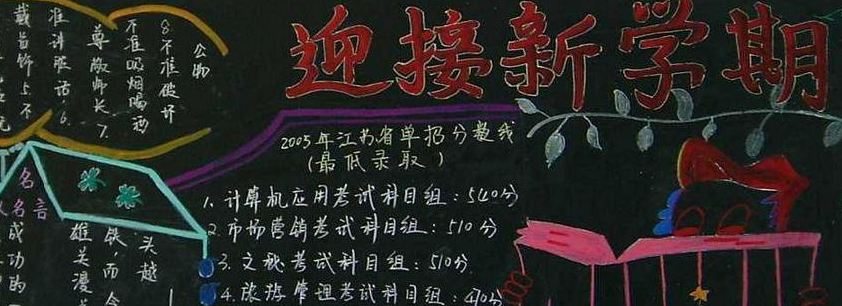 迎接新学期
2005年江苏省单招分数线
(最低录取)
1、计算机应用考试科目组：540分
2、市场营销考试科目组：510分
3、文秘考试科目组：510分
4、旅游管理考试科目组：490分
公物
8.不准破坏
不准吸烟喝酒
尊敬师长7、
准讲脏话.6.
戴首饰上不
名言
名
成功的
头越
铁，而今
雄关漫